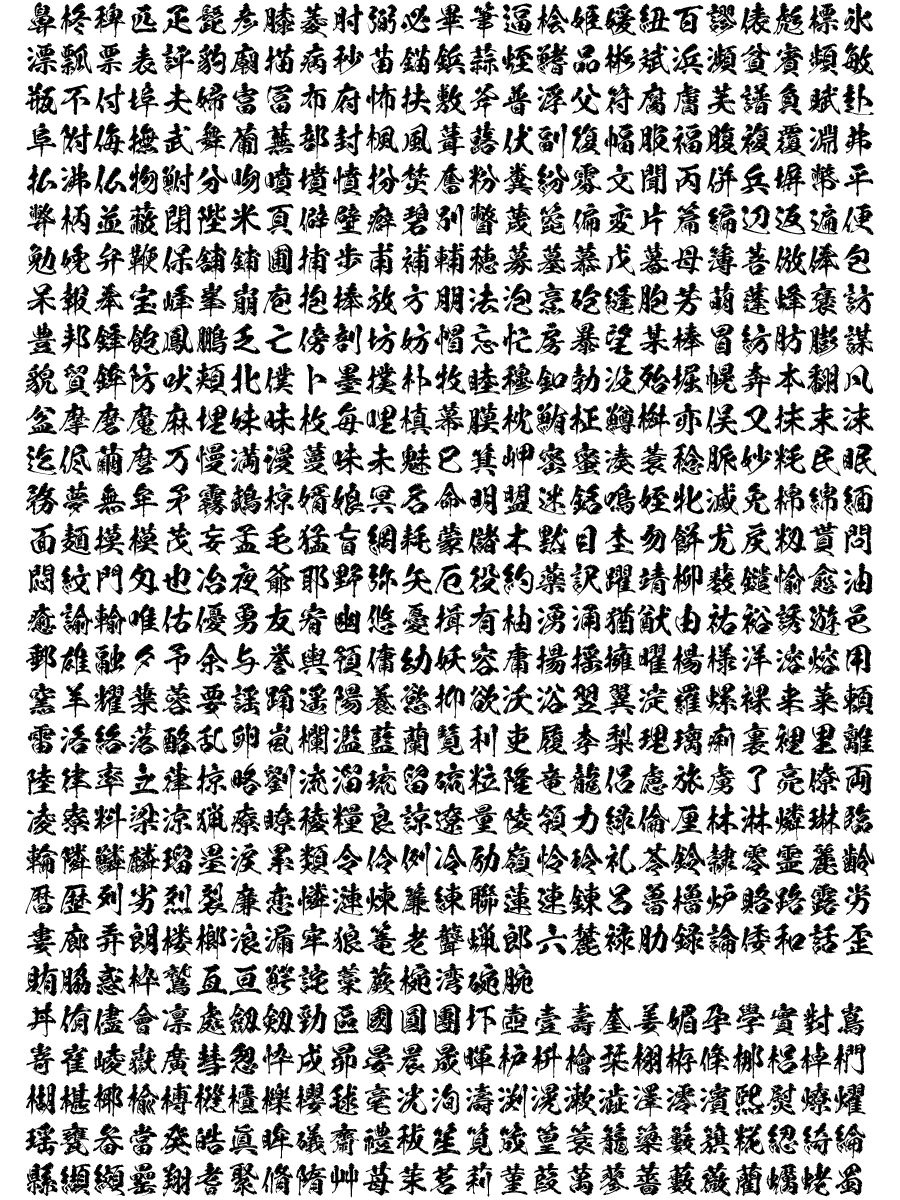 鼻柊稗匹疋髭彦膝菱肘弼必畢筆逼桧姫媛紐百謬俵彪標氷
漂瓢票表評豹廟描病秒苗錨鋲蒜蛭鰭品彬斌浜瀕貧賓頻敏
瓶不付埠夫婦富冨布府怖扶敷斧普浮父符腐膚芙譜負賦赴
阜附侮撫武舞葡蕪部封楓風葺蕗伏副復幅服福腹複覆淵弗
払沸仏物鮒分吻噴墳憤扮焚奮粉糞紛雰文聞丙併兵塀幣平
弊柄並蔽閉陛米頁僻壁癖碧別瞥蔑箆偏変片篇編辺返遍便
勉娩弁鞭保舗鋪圃捕歩甫補輔穂募墓慕戊暮母簿菩倣俸包
呆報奉宝峰峯崩庖抱捧放方朋法泡烹砲縫胞芳萌蓬蜂褒訪
豊邦鋒飽鳳鵬乏亡傍剖坊妨帽忘忙房暴望某棒冒紡肪膨謀
貌貿鉾防吠頬北僕卜墨撲朴牧睦穆釦勃没殆堀幌奔本翻凡
盆摩磨魔麻埋妹昧枚毎哩槙幕膜枕鮪柾鱒桝亦俣又抹末沫
迄侭繭麿万慢満漫蔓味未魅巳箕岬密蜜湊蓑稔脈妙粍民眠
務夢無牟矛霧鵡椋婿娘冥名命明盟迷銘鳴姪牝滅免棉綿緬
面麺摸模茂妄孟毛猛盲網耗蒙儲木黙目杢勿餅尤戻籾貰問
悶紋門匁也冶夜爺耶野弥矢厄役約薬訳躍靖柳薮鑓愉愈油
癒諭輸唯佑優勇友宥幽悠憂揖有柚湧涌猶猷由祐裕誘遊邑
郵雄融夕予余与誉輿預傭幼妖容庸揚揺擁曜楊様洋溶熔用
窯羊耀葉蓉要謡踊遥陽養慾抑欲沃浴翌翼淀羅螺裸来莱頼
雷洛絡落酪乱卵嵐欄濫藍蘭覧利吏履李梨理璃痢裏裡里離
陸律率立葎掠略劉流溜琉留硫粒隆竜龍侶慮旅虜了亮僚両
凌寮料梁涼猟療瞭稜糧良諒遼量陵領力緑倫厘林淋燐琳臨
輪隣鱗麟瑠塁涙累類令伶例冷励嶺怜玲礼苓鈴隷零霊麗齢
暦歴列劣烈裂廉恋憐漣煉簾練聯蓮連錬呂魯櫓炉賂路露労
婁廊弄朗楼榔浪漏牢狼篭老聾蝋郎六麓禄肋録論倭和話歪
賄脇惑枠鷲亙亘鰐詫藁蕨椀湾碗腕
丼侑儘會凜處劔剱勁區國圓團圷壺壹壽奎姜媚孕學實對嵩
嵜崔崚嶽廣彗怱忰戌昴晏晨晟暉枦枡檜栞栩栫條梛梠棹椚
楜椹椰楡榑橇櫃櫟櫻毬毫洸洵濤渕滉漱澁澤澪濱熈熨燎燿
瑶甕畚當癸皓眞眸礒齋禮祓笙筧筬篁簑籠簗籔籏糀綛綺綸
縣纐纈罍翔耆聚脩隋艸苺茱茗莉菫葭萬蓼薔藪薇藺蠣蛯蜀